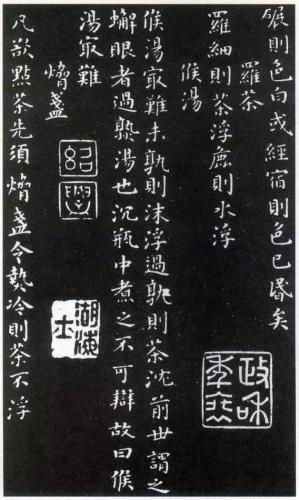 碾則色白或經宿則色已昬矣
羅茶
羅細則茶浮麁則水浮
候湯
候湯冣難未孰則沫浮過孰則茶沈前世謂之
蠏眼者過熟湯也沉瓶中煮之不可辯故曰候
湯冣難
熁盞
紹興
凡欲點茶先須熁盞令熱冷則茶不浮